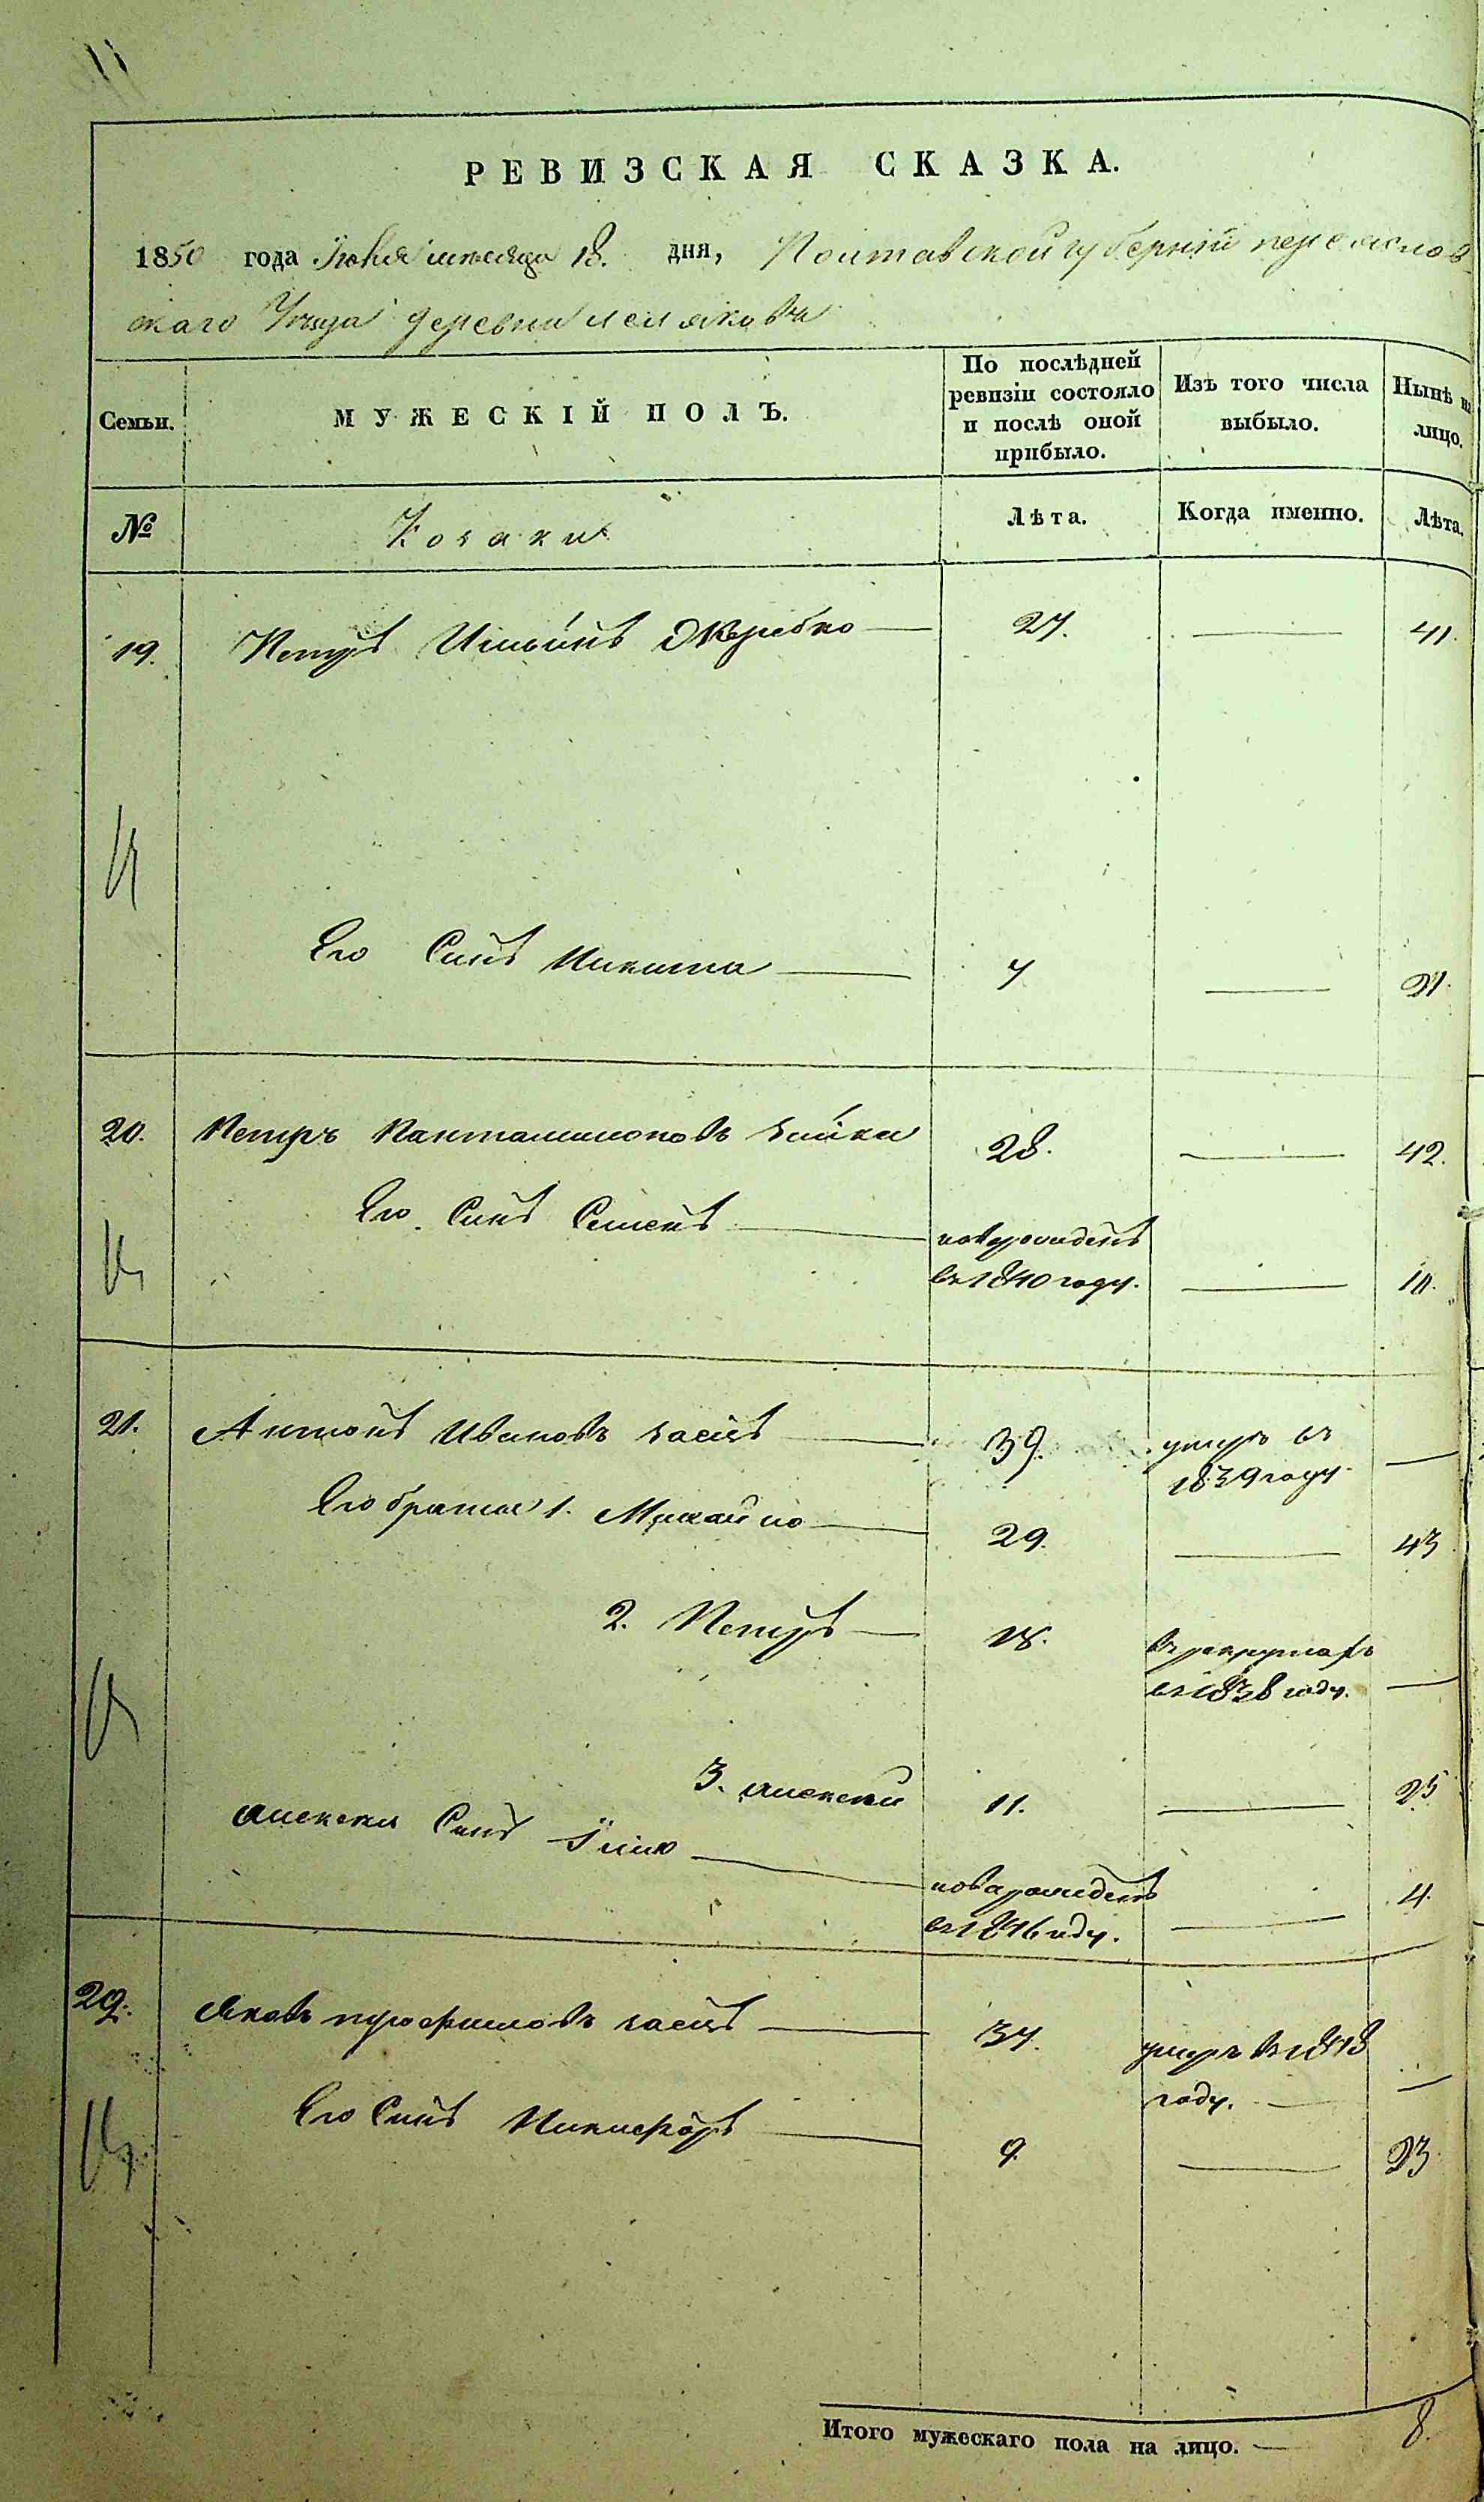 РЕВИЗСКАЯ СКАЗКА.
1850 года Іюня месяца 18. дня, Полтавской губерніи переяслов
скаго Уезда деревни
Семьи.
МУЖЕСКІЙ ПОЛЪ.
По послѣдней ревизіи состояло и послѣ оной прибыло.
Изъ того числа выбыло.
Нынѣ на лицо.
№
Козаки
Лѣта.
Когда именно.
Лѣта.
19. Петръ Ильинъ Жеребко 27. 41.
Его Синъ Никита 7 21.
20. Петръ Панталимоновъ 28. 42.
Его Синъ Семенъ новорожденъ
въ 1840 году. 10.
21. Антонъ Ивановъ Заецъ 39. умеръ въ
1839 году
Его братья 1. Михайло 29. 43
2. Петръ 18. въ рекрутахъ
въ 1838 году.
3. алексей 11. 25
алексея Синъ Илия новорожденъ 4.
въ 1846 году.
22. Яковъ Заецъ 34. умеръ въ 1848
году.
Его Синъ Никифоръ 9. 23
Итого мужескаго пола на лицо. 8.